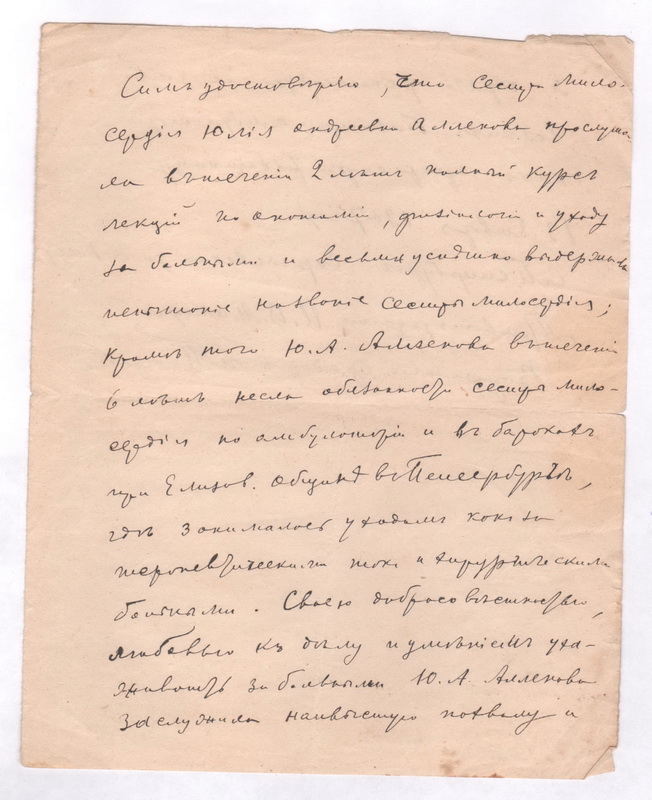 Симъ удостовѣряю, что сестра мило-
сердія Юлія Андреевна Алленова прослуша-
ла втеченіи 2 лѣтъ полный курсъ
лекцій по анатоміи, физіологіи и уходу
за больными и весьма успѣшно выдержала
испытаніе на званіе сестры милосердія;
Кромѣ того Ю. А. Алленова втеченіи
6 лѣтъ несла обязанности сестры мило-
сердія по амбулаторіи и въ баракахъ
при Елизав. общинѣ въ Петербургѣ,
гдѣ занималась уходомъ какъ за
терапевтическими такъ и хирургическими
больными. Своею добросовѣстностью,
любовью къ дѣлу и умѣніемъ уха-
живать за больными Ю. А. Алленова
заслужила наивысшую похвалу и